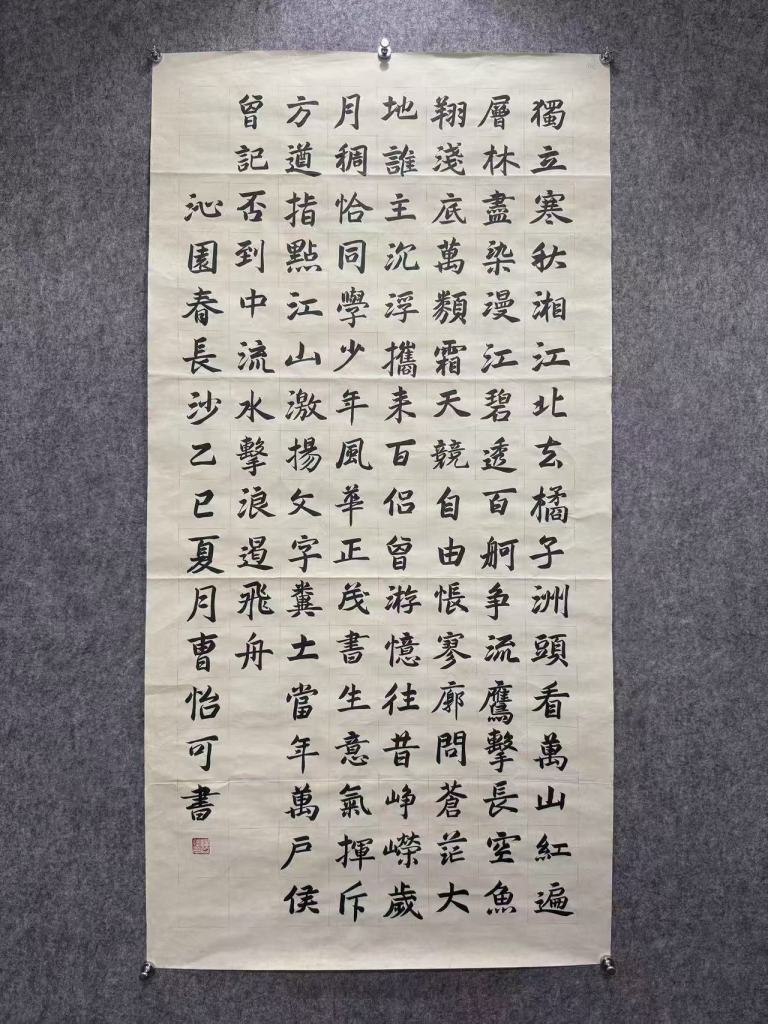 獨立寒秋湘江北去橘子洲頭看萬山紅遍
層林盡染漫江碧透百舸争流鷹擊長空魚
翔淺底萬類霜天競自由悵寥廓問蒼茫大
地誰主沉浮攜来百侣曾游憶往昔峥嶸歲
月稠恰同學少年風華正茂書生意氣揮斥
方遒指點江山激揚文字糞土當年萬戶侯
曾記否到中流水擊浪遏飛舟
沁園春長沙乙巳夏月曹怡可書